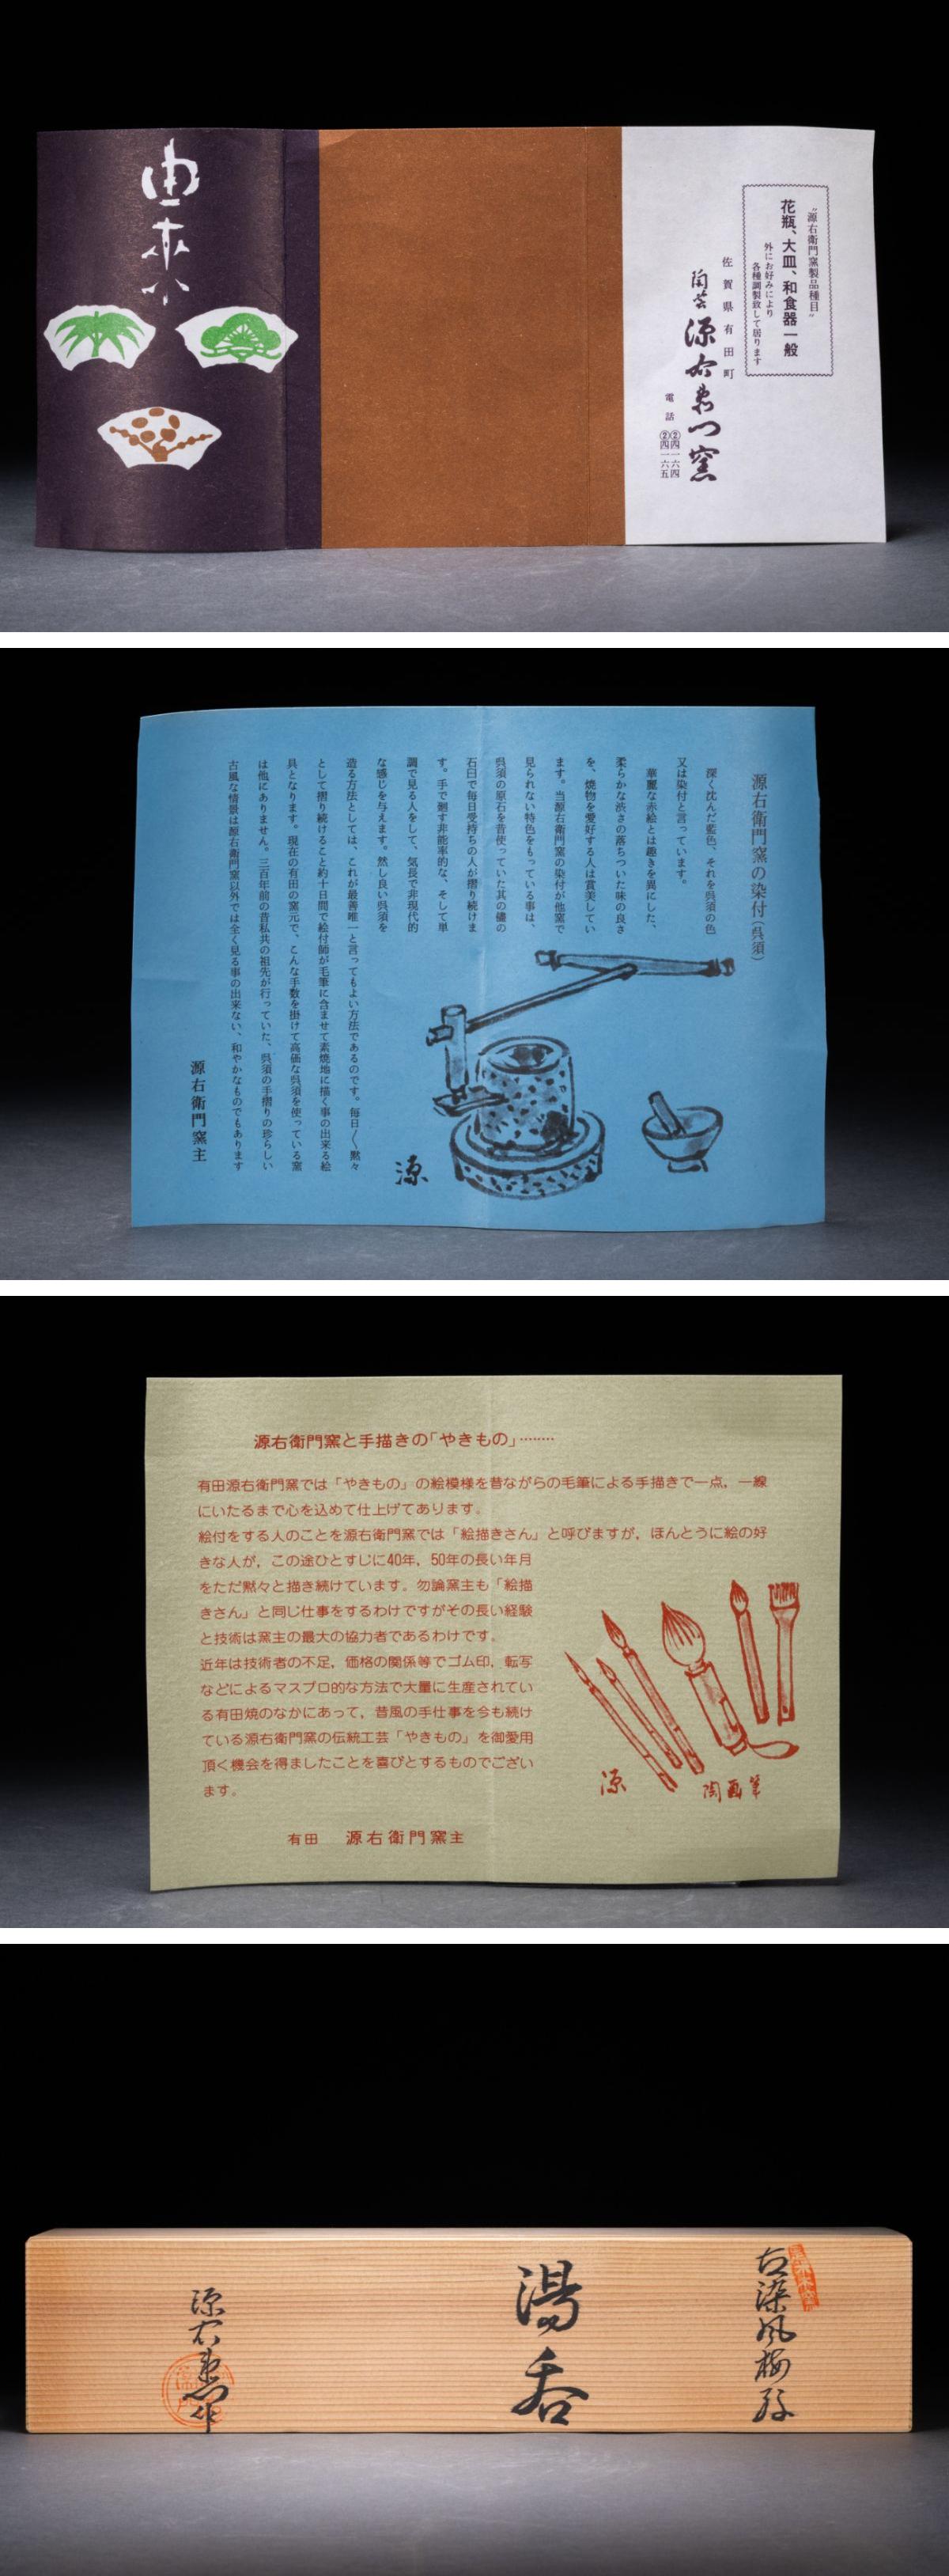 由来
〝源右衛門窯製品種目〟
花瓶、大皿、和食器一般
外にお好みにより
各種調製致して居ります
佐賀県有田町
陶芸 源右衛門窯
電話 ②四一六四
②四一六五
源右衛門窯の染付(呉須)
深く沈んだ藍色、それを呉須の色
又は染付と言っています。
華麗な赤絵とは趣きを異にした、
柔らかな渋さの落ちついた味の良さ
を、焼物を愛好する人は賞美してい
ます。当源右衛門窯の染付が他窯で
見られない特色をもっている事は、
呉須の原石を昔使っていた其の儘の
石臼で毎日受持ちの人が摺り続けま
す。手で廻す非能率的な、そして単
調で見る人をして、気長で非現代的
な感じを与えます。然し良い呉須を
造る方法としては、これが最善唯一と言ってもよい方法であるのです。毎日〱黙々
として摺り続けること約十日間で絵付師が毛筆に含ませて素焼地に描く事の出来る絵
具となります。現在の有田の窯元で、こんな手数を掛けて高価な呉須を使っている窯
は他にありません。三百年前の昔私共の祖先が行っていた、呉須の手摺りの珍らしい
古風な情景は源右衛門窯以外では全く見る事の出来ない、和やかなものでもあります
源右衛門窯主
源
源右衛門窯と手描きの「やきもの」‥‥‥‥
有田源右衛門窯では「やきもの」の絵模様を昔ながらの毛筆による手描きで一点，一線
にいたるまで心を込めて仕上げてあります。
絵付をする人のことを源右衛門窯では「絵描きさん」と呼びますが，ほんとうに絵の好
きな人が，この途ひとすじに40年，50年の長い年月
をただ黙々と描き続けています。勿論窯主も「絵描
きさん」と同じ仕事をするわけですがその長い経験
と技術は窯主の最大の協力者であるわけです。
近年は技術者の不足，価格の関係等でゴム印，転写
などによるマスプロ的な方法で大量に生産されてい
る有田焼のなかにあって，昔風の手仕事を今も続け
ている源右衛門窯の伝統工芸「やきもの」を御愛用
頂く機会を得ましたことを喜びとするものでござい
ます。
有田 源右衛門窯主
源
陶画筆
古染風梅絵
湯呑
源右衛門作